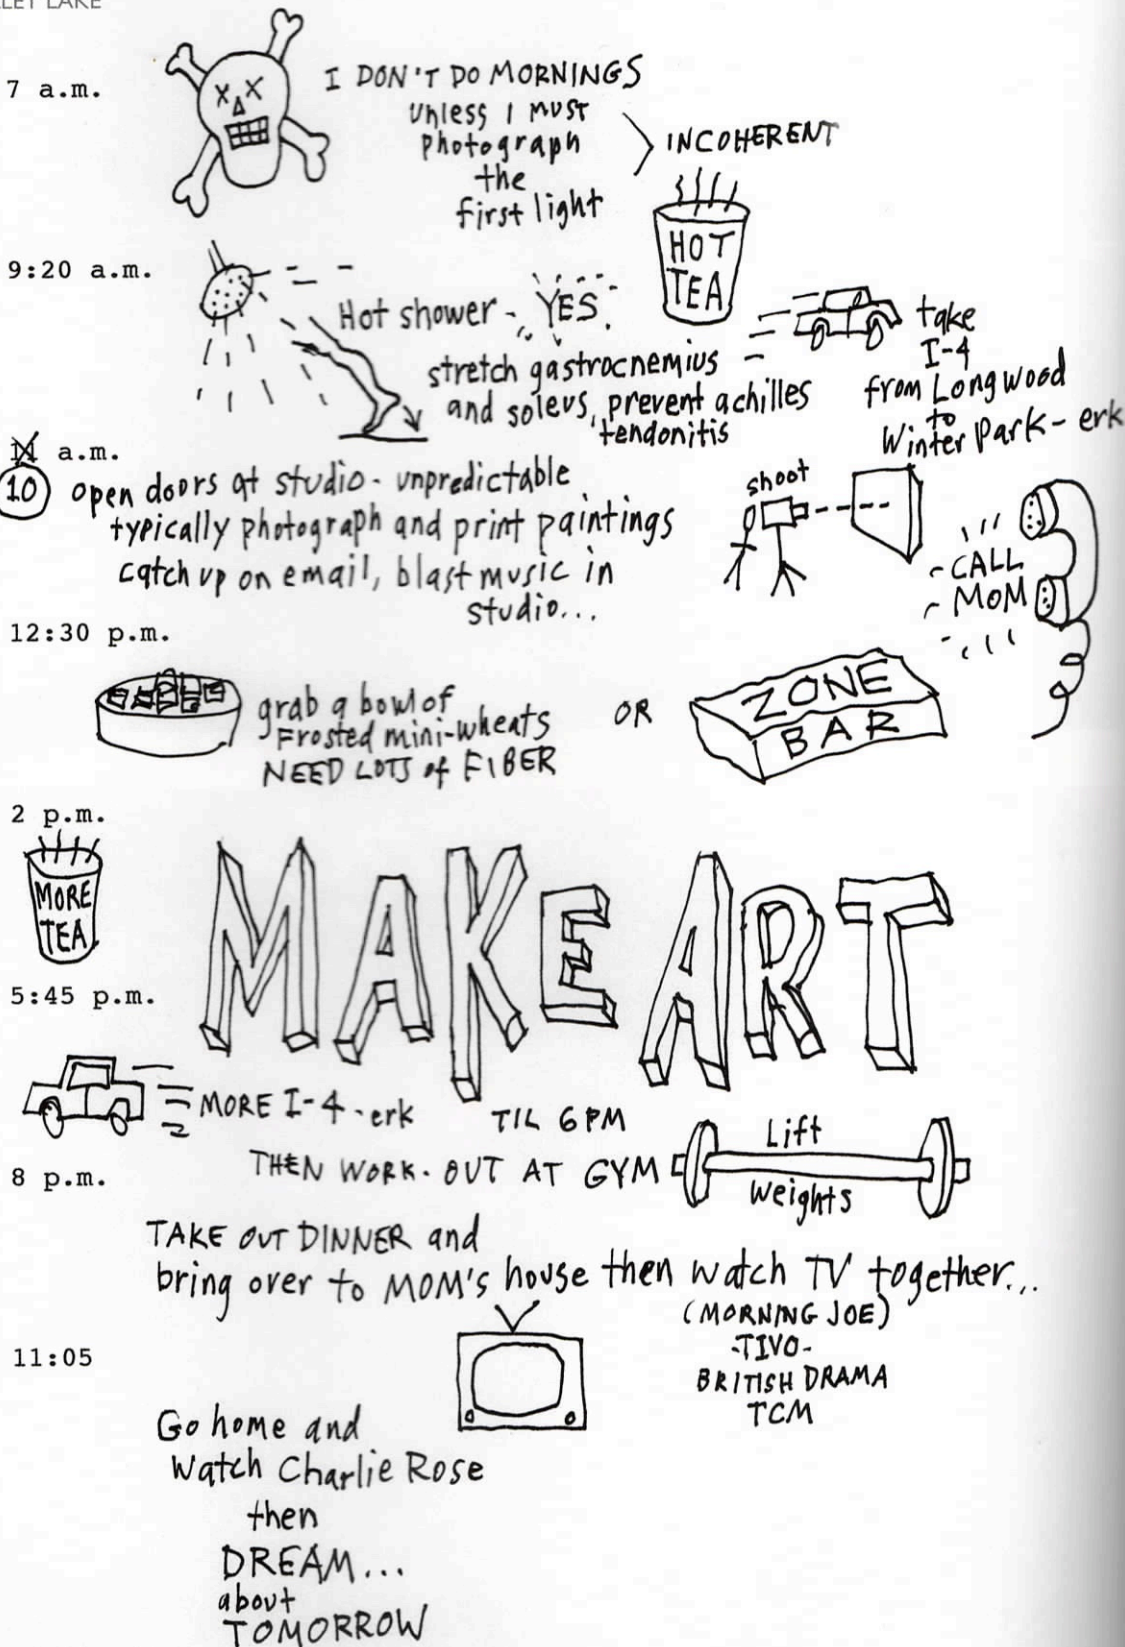 LET LAKE
7 a.m.
I DON'T DO MORNINGS
Unless I MUST
photograph
the
first light
INCOHERENT
HOT
TEA
9:20 a.m.
Hot shower - YES
stretch gastrocnemius
and soleus, prevent achilles
tendonitis
take
I-4
from Longwood
to
Winter Park - erk
a.m.
10 open doors at studio - unpredictable
typically photograph and print paintings
catch up on email, blast music in
studio...
shoot
CALL
MOM
12:30 p.m.
grab a bowl of
Frosted mini-wheats
NEED LOTS of FIBER
OR
ZONE
BAR
2 p.m.
MORE
TEA
MAKE ART
5:45 p.m.
MORE I-4 - erk
TIL 6 PM
THEN WORK-OUT AT GYM
Lift
weights
8 p.m.
TAKE OUT DINNER and
bring over to MOM's house then watch TV together...
(MORNING JOE)
-TIVO-
BRITISH DRAMA
TCM
11:05
Go home and
Watch Charlie Rose
then
DREAM...
about
TOMORROW